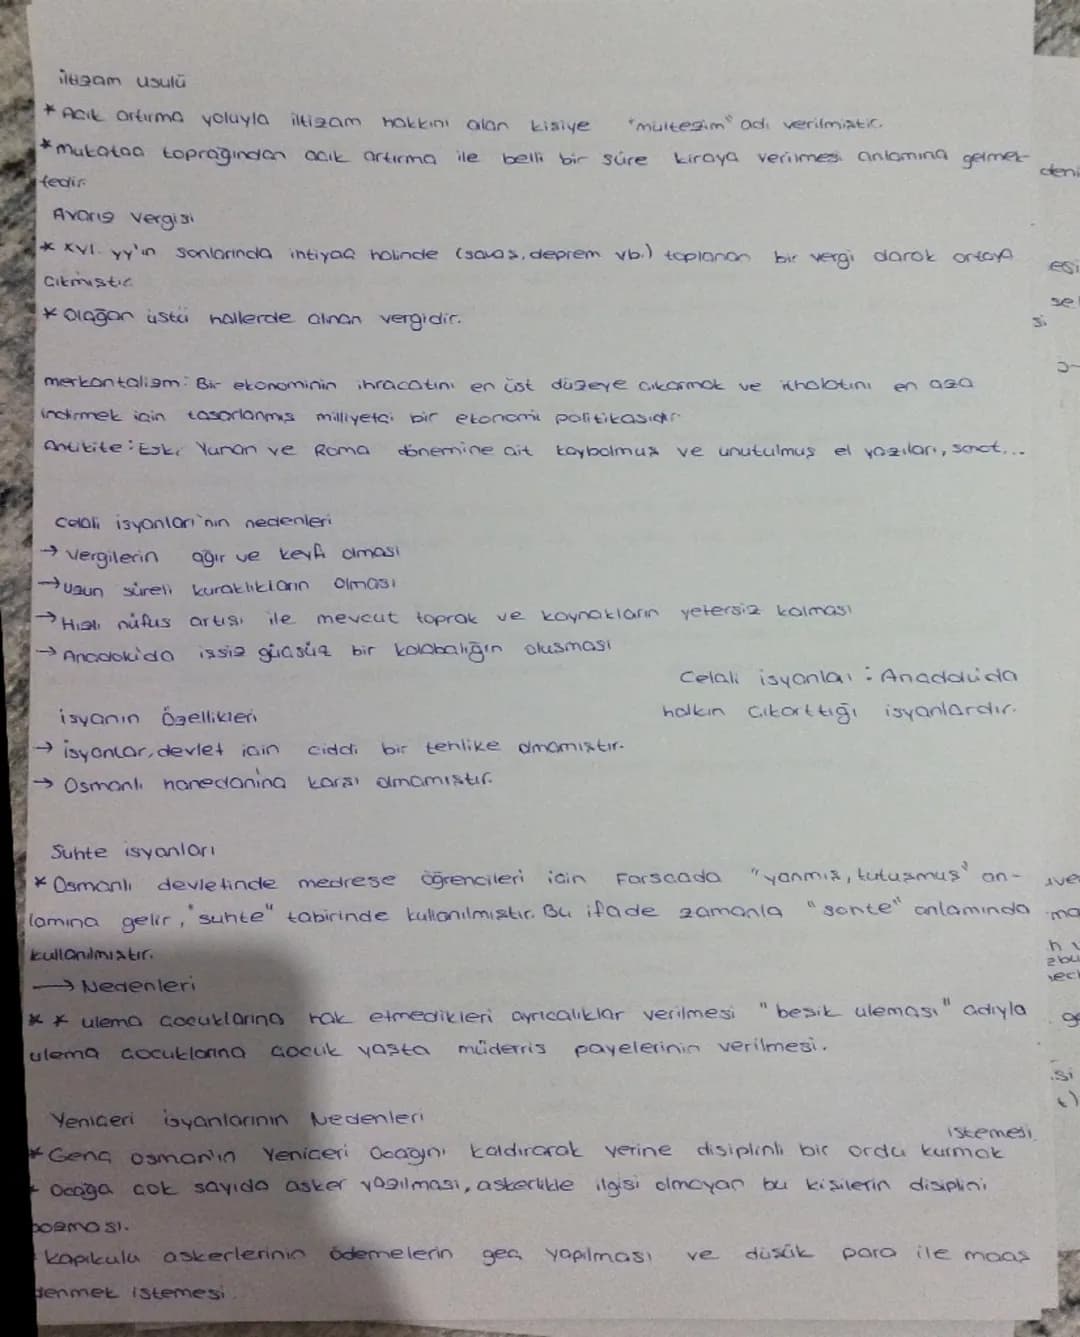 iltizam usulü
* Acık artırma yoluyla iltizam hakkını alan kisiye "mültezim" adı verilmiştir.
* mukataa toprağından acık artırma ile belli bir süre kiraya verilmesi anlamına gelmek-
tedir.
Avarız vergisi
* XVI. yy'ın sonlarında intiyaç halinde (savaş, deprem vb.) toplanan bir vergi olarak ortaya
cıkmıstır.
* Olağan üstü hallerde alınan vergidir.
merkantalizm: Bir ekonominin ihracatını en üst düzeye cıkarmak ve ithalatını en aza
indirmek icin tasarlanmıs milliyetçi bir ekonomi politikasıdır.
Antikite: Eski Yunan ve Roma dönemine ait kaybolmuş ve unutulmuş el yazıları, sanat...
celali isyanları'nın nedenleri
→ Vergilerin ağır ve keyfi olması
→ uzun süreli kuraklıkların olması
→ Hızlı nüfus artısı ile mevcut toprak ve kaynakların yetersiz kalması
→ Anadolu'da issiz güçsüz bir kalabalığın olusması
Celali isyanları: Anadolu'da
halkın cıkarttığı isyanlardır.
isyanın Özellikleri
→ isyanlar, devlet icin ciddi bir tehlike olmamıştır.
→ Osmanlı hanedanina karsı olmamıstır.
Suhte isyanları
* Osmanlı devletinde medrese öğrencileri icin Farscada "yanmış, tutuşmuş" an-
lamına gelir, "suhte" tabirinde kullanılmıstır. Bu ifade zamanla "sohte" anlamında
kullanılmıstır.
→ Nedenleri
* * ulema cocuklarına hak etmedikleri ayrıcalıklar verilmesi "besik uleması" adıyla
ulema cocuklarına çocuk yasta müderris payelerinin verilmesi.
Yeniceri isyanlarının Nedenleri
* Genc osman'ın Yeniceri Ocagını kaldırarak yerine disiplinli bir ordu kurmak istemesi
Ocağa cok sayıda asker yazılması, askerlikle ilgisi olmayan bu kisilerin disiplini
bozması.
kapıkulu askerlerinin ödemelerin geç yapılması ve düsük para ile maas
denmek istemesi